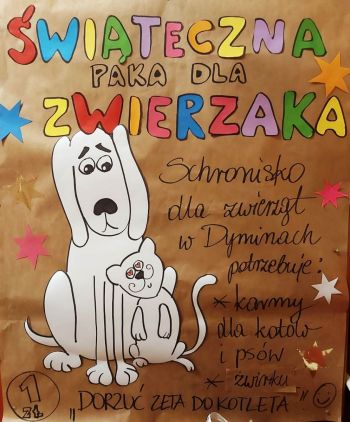 ŚWIĄTECZNA
PAKA DLA
ZWIERZAKA
Schronisko
dla zwierząt
w Dyminach
potrzebuje:
* karmy
dla kotów
i psów
* żwirku
1 ZŁ
„DORZUĆ ZETA DO KOTLETA"